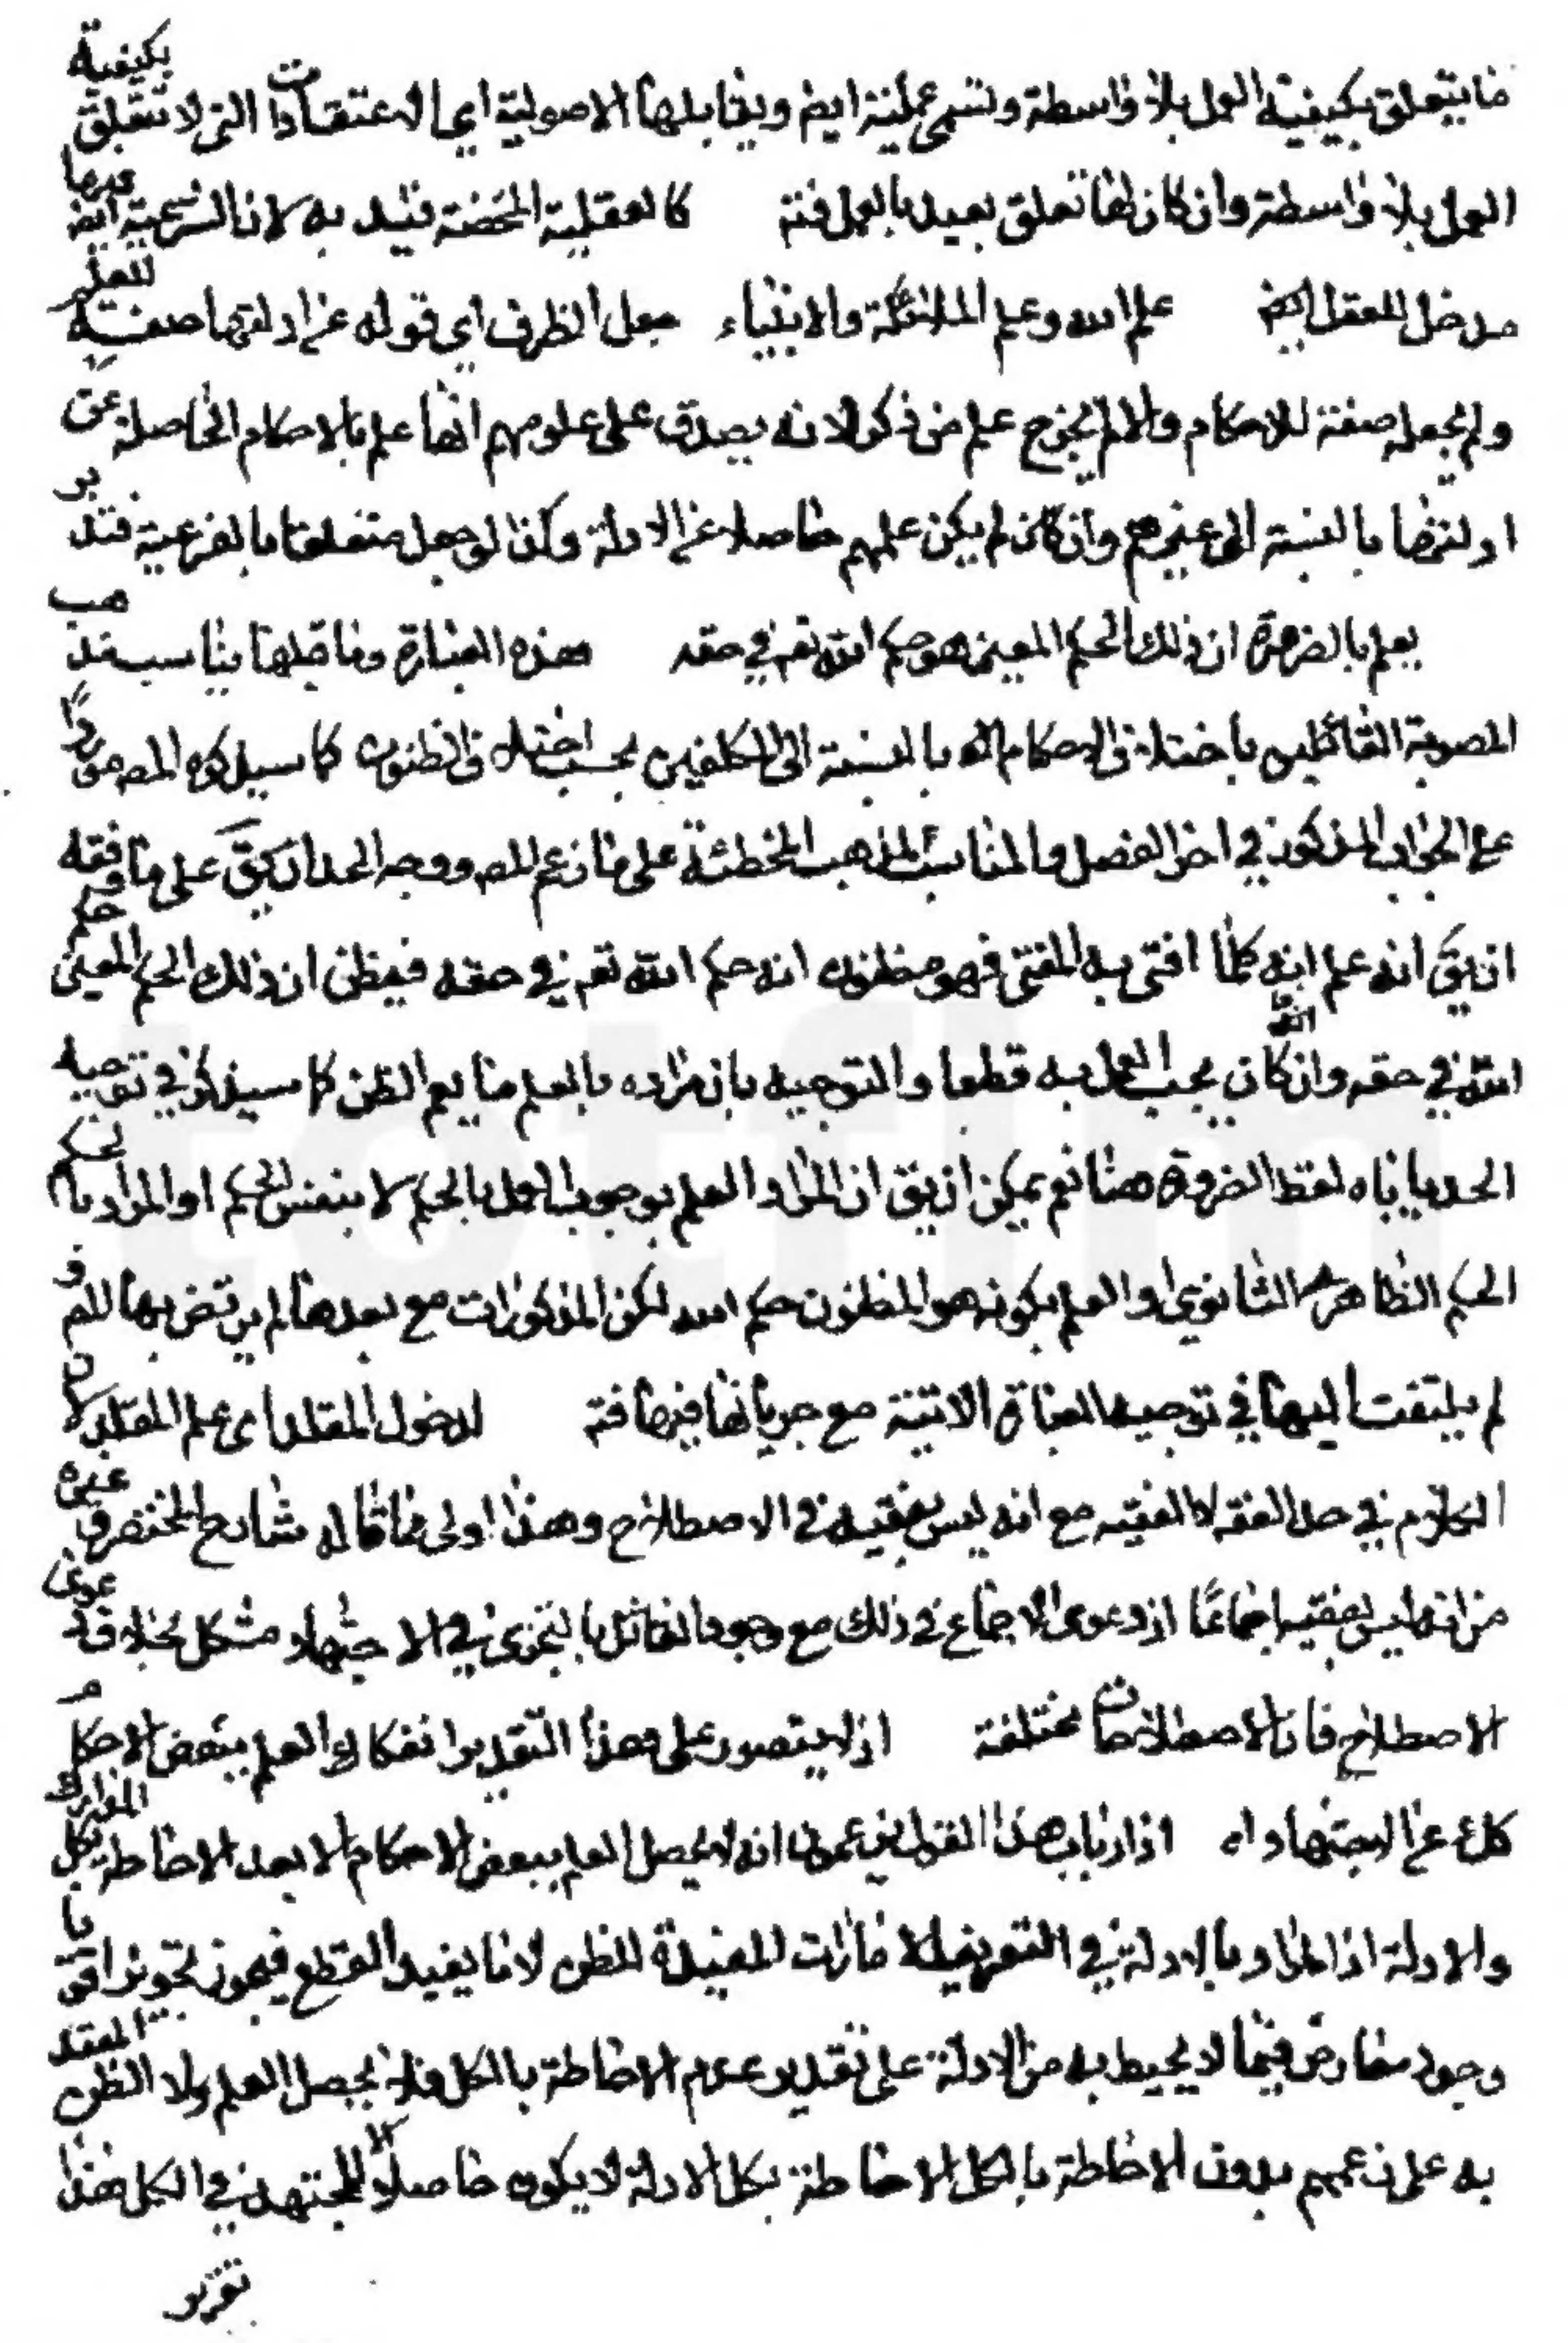 ما يتعلق بكيفية العمل بلا واسطة وتسمى عملية ايض ويقابلها الاصولية اى الاعتقادات التى لا تتعلق بكيفية
العمل بلا واسطة وان كان لها تعلق بعيد بالعمل فتد كالعقلية المحضة قيد به لان الشرعية ايض فيها
مدخل للعقل ايض علم الله وعلم الملائكة والانبياء جعل الظرف اى قوله عن ادلتها صفة للعلم
ولم يجعله صفة للاحكام والا لم يخرج علم من ذكر لانه يصدق على علومهم انها علم بالاحكام الحاصلة عن
ادلتها بالنسبة الى غيرهم وان كان لم يكن علمهم حاصلا عن الادلة وكذا لو جعل متعلقا بالفرعية فتدبر
يعلم بالضرورة ان ذلك الحكم المعين هو حكم الله تع في حقه هذه العبارة وما قبلها يناسب مذهب
المصوبة القائلين باختلاف الاحكام بالنسبة الى المكلفين بحسب اختلاف الظنون كما سيذكره المص
على الجواب المذكور في اخر الفصل والمناسب لمذهب المخطئة على ما زعم المص ووجه الحد ان يق على ما فقه
ان يق انه علم انه كلما افتى به المفتى فهو مظنون انه حكم الله تع في حقه فيظن ان ذلك الحكم المعين حكم
الله في حقه وان كان يجب العمل به قطعا والتوجيه بان مراده بالعلم ما يعم الظن كما سيذكر في توجيه
الحد ياباه لفظ الضرورة هنا نعم يمكن ان يق ان المراد العلم بوجوب العمل بالحكم لا بنفس الحكم او المراد بالحكم
الحكم الظاهرى الثانوى او العلم بكونه هو المظنون حكم الله لكن المذكورات مع بعدها لم يرتض بها المص و
لم يلتفت اليها في توجيه العبارة الاتية مع جريانها فيها فتد لدخول المقلد اى علم المقلد لان
الكلام في حد الفقه لا الفقيه مع انه ليس بفقيه في الاصطلاح وهذا اولى مما قاله شارح المختصر وغيره
من انه ليس بفقيه اجماعا اذ دعوى الاجماع في ذلك مع وجود القائل بالتجزى في الاجتهاد مشكل بخلاف دعوى
الاصطلاح فان الاصطلاحات مختلفة اذ لا يتصور على هذا التقدير انفكاك العلم ببعض الاحكام
كك عن الاجتهاد اه اذ ارباب هذا القول يزعمون انه لا يحصل العلم ببعض الاحكام الا بعد الاحاطة بكل المدارك
والادلة اذ المراد بالادلة في التعريف الامارات المفيدة للظن لا ما يفيد القطع فيجوز تجويزا قويا
وجود معارض فيما لا يحيط به من الادلة على تقدير عدم الاحاطة بالكل فلا يحصل العلم ولا الظن المعتد
به على زعمهم بدون الاحاطة بالكل الاحاطة بكل الادلة لا يكون حاصلا الا للمجتهد في الكل هذا
تقرير